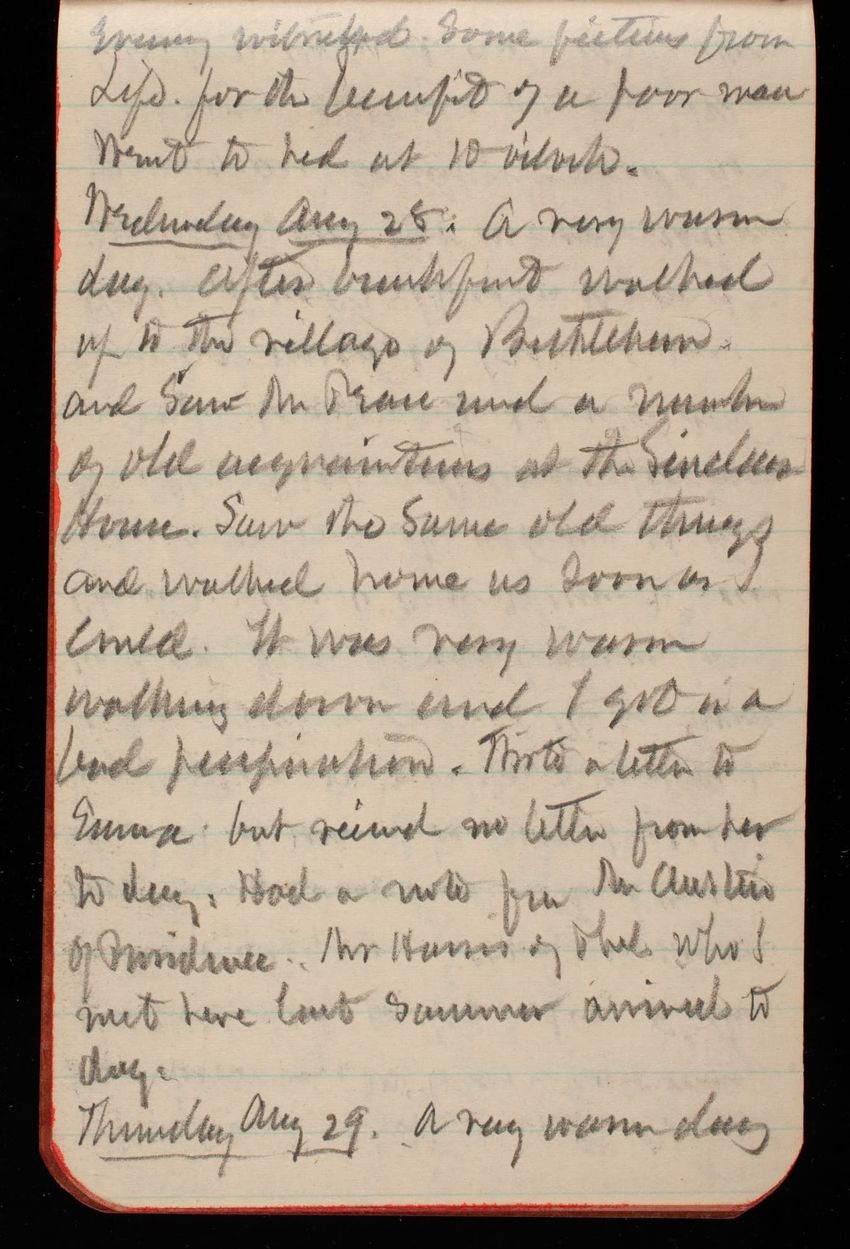 Evening witnessed Some pictures from
Life. for the benefit of a poor man
Went to bed at 10 oclock.
Wednesday Aug 28. A very warm
day. After breakfast walked
up to the village of Bethlehem.
and Saw Mr and a number
of old acquaintences at the Sinclair
House. Saw the Same old things
and walked home as Soon as I
could. It was very warm
walking down and I got in a
bad perspiration. Wrote a letter to
Emma but recieved no letter from her
to day. Had a note from Mr Austin
of Providence. Mr Harris of Phil. who I
met here last Summer arrived to
day.
Thursday Aug 29. A very warm day